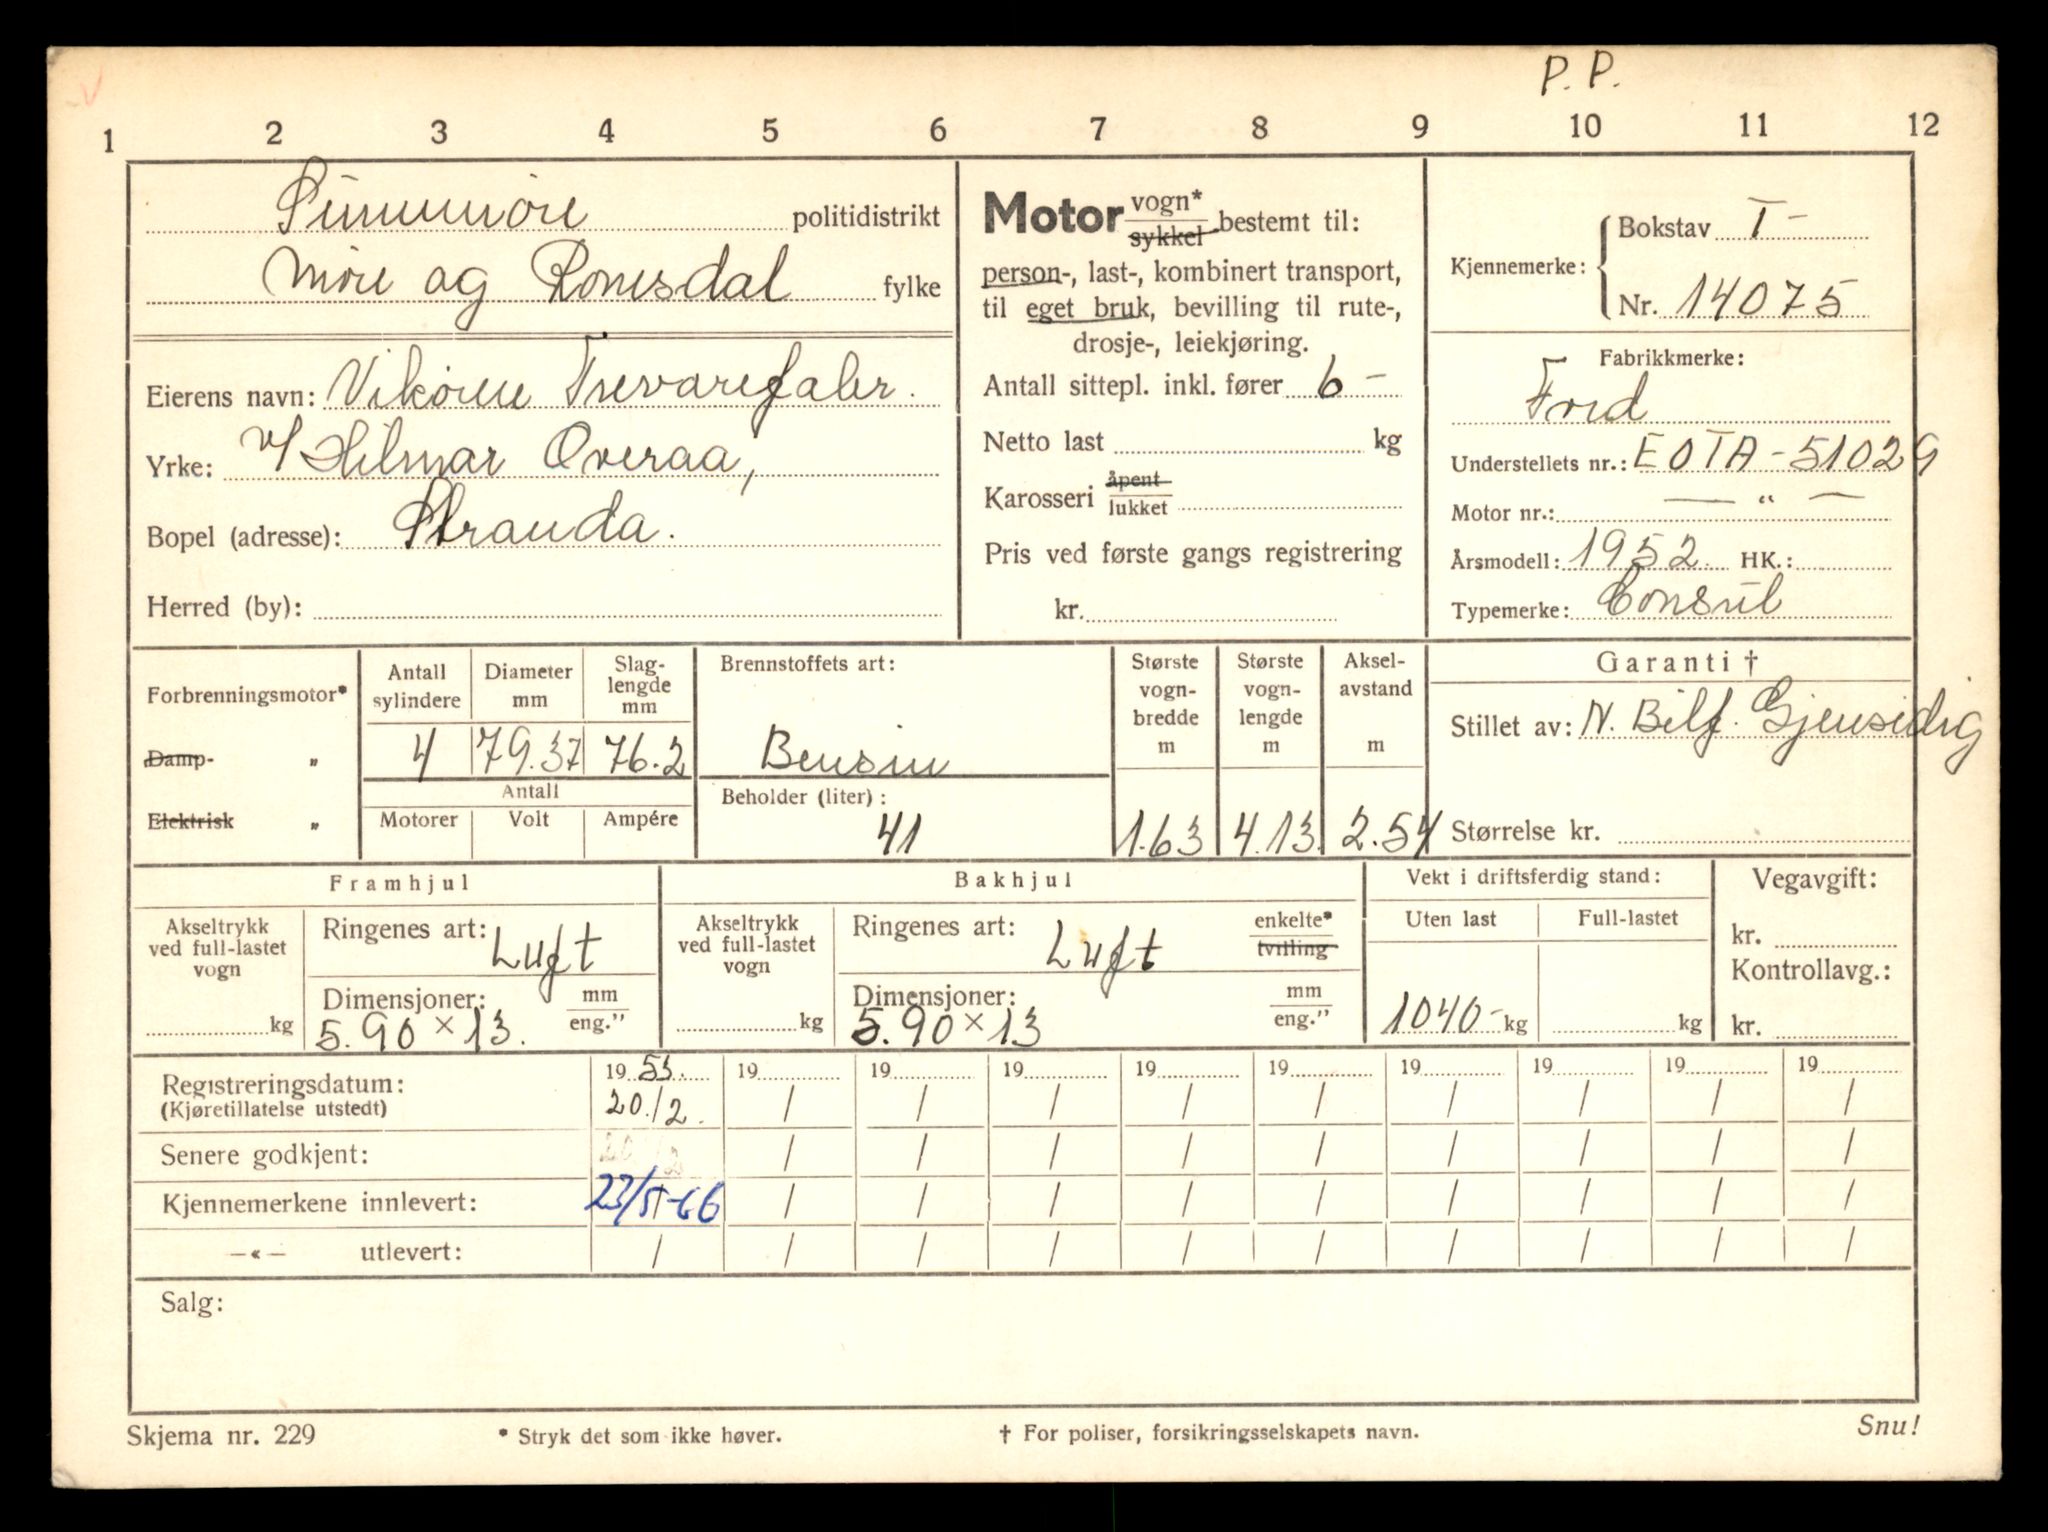 P. P.
1 2 3 4 5 6 7 8 9 10 11 12
Sunnmøre politidistrikt
Møre og Romsdal fylke
Eierens navn: Vikøren Trevarefabr.
Yrke: v/ Hilmar Overaa,
Bopel (adresse): Stranda.
Herred (by):
Motor vogn* sykkel bestemt til:
person-, last-, kombinert transport,
til eget bruk, bevilling til rute-,
drosje-, leiekjøring.
Antall sittepl. inkl. fører 6-
Netto last kg
Karosseri åpent lukket
Pris ved første gangs registrering
kr.
Kjennemerke: Bokstav T-
Nr. 14075
Fabrikkmerke:
Ford
Understellets nr.: EOTA-51029
Motor nr.: — " —
Årsmodell: 1952. HK.:
Typemerke: Consul
Forbrenningsmotor*
Damp- „
Elektrisk „
Antall sylindere Diameter mm Slag-lengde mm
4 79.37 76.2
Antall
Motorer Volt Ampére
Brennstoffets art:
Bensin
Beholder (liter):
41
Største vogn-bredde m Største vogn-lengde m Aksel-avstand m
1.63 4.13 2.54
Garanti †
Stillet av: N. Bilf. Gjensidig
Størrelse kr.
Framhjul
Akseltrykk ved full-lastet vogn
kg
Ringenes art: Luft
Dimensjoner: mm eng."
5.90 × 13.
Bakhjul
Akseltrykk ved full-lastet vogn
kg
Ringenes art: Luft enkelte* tvilling
Dimensjoner: mm eng."
5.90 × 13
Vekt i driftsferdig stand:
Uten last Full-lastet
1040- kg kg
Vegavgift:
kr.
Kontrollavg.:
kr.
Registreringsdatum: 19 53. 19 19 19 19 19 19 19 19 19
(Kjøretillatelse utstedt) 20./2. / / / / / / / / /
Senere godkjent: 20/2 / / / / / / / / /
Kjennemerkene innlevert: 23/5-66 / / / / / / / / /
—«— utlevert: / / / / / / / / / /
Salg:
Skjema nr. 229
* Stryk det som ikke høver.
† For poliser, forsikringsselskapets navn.
Snu!